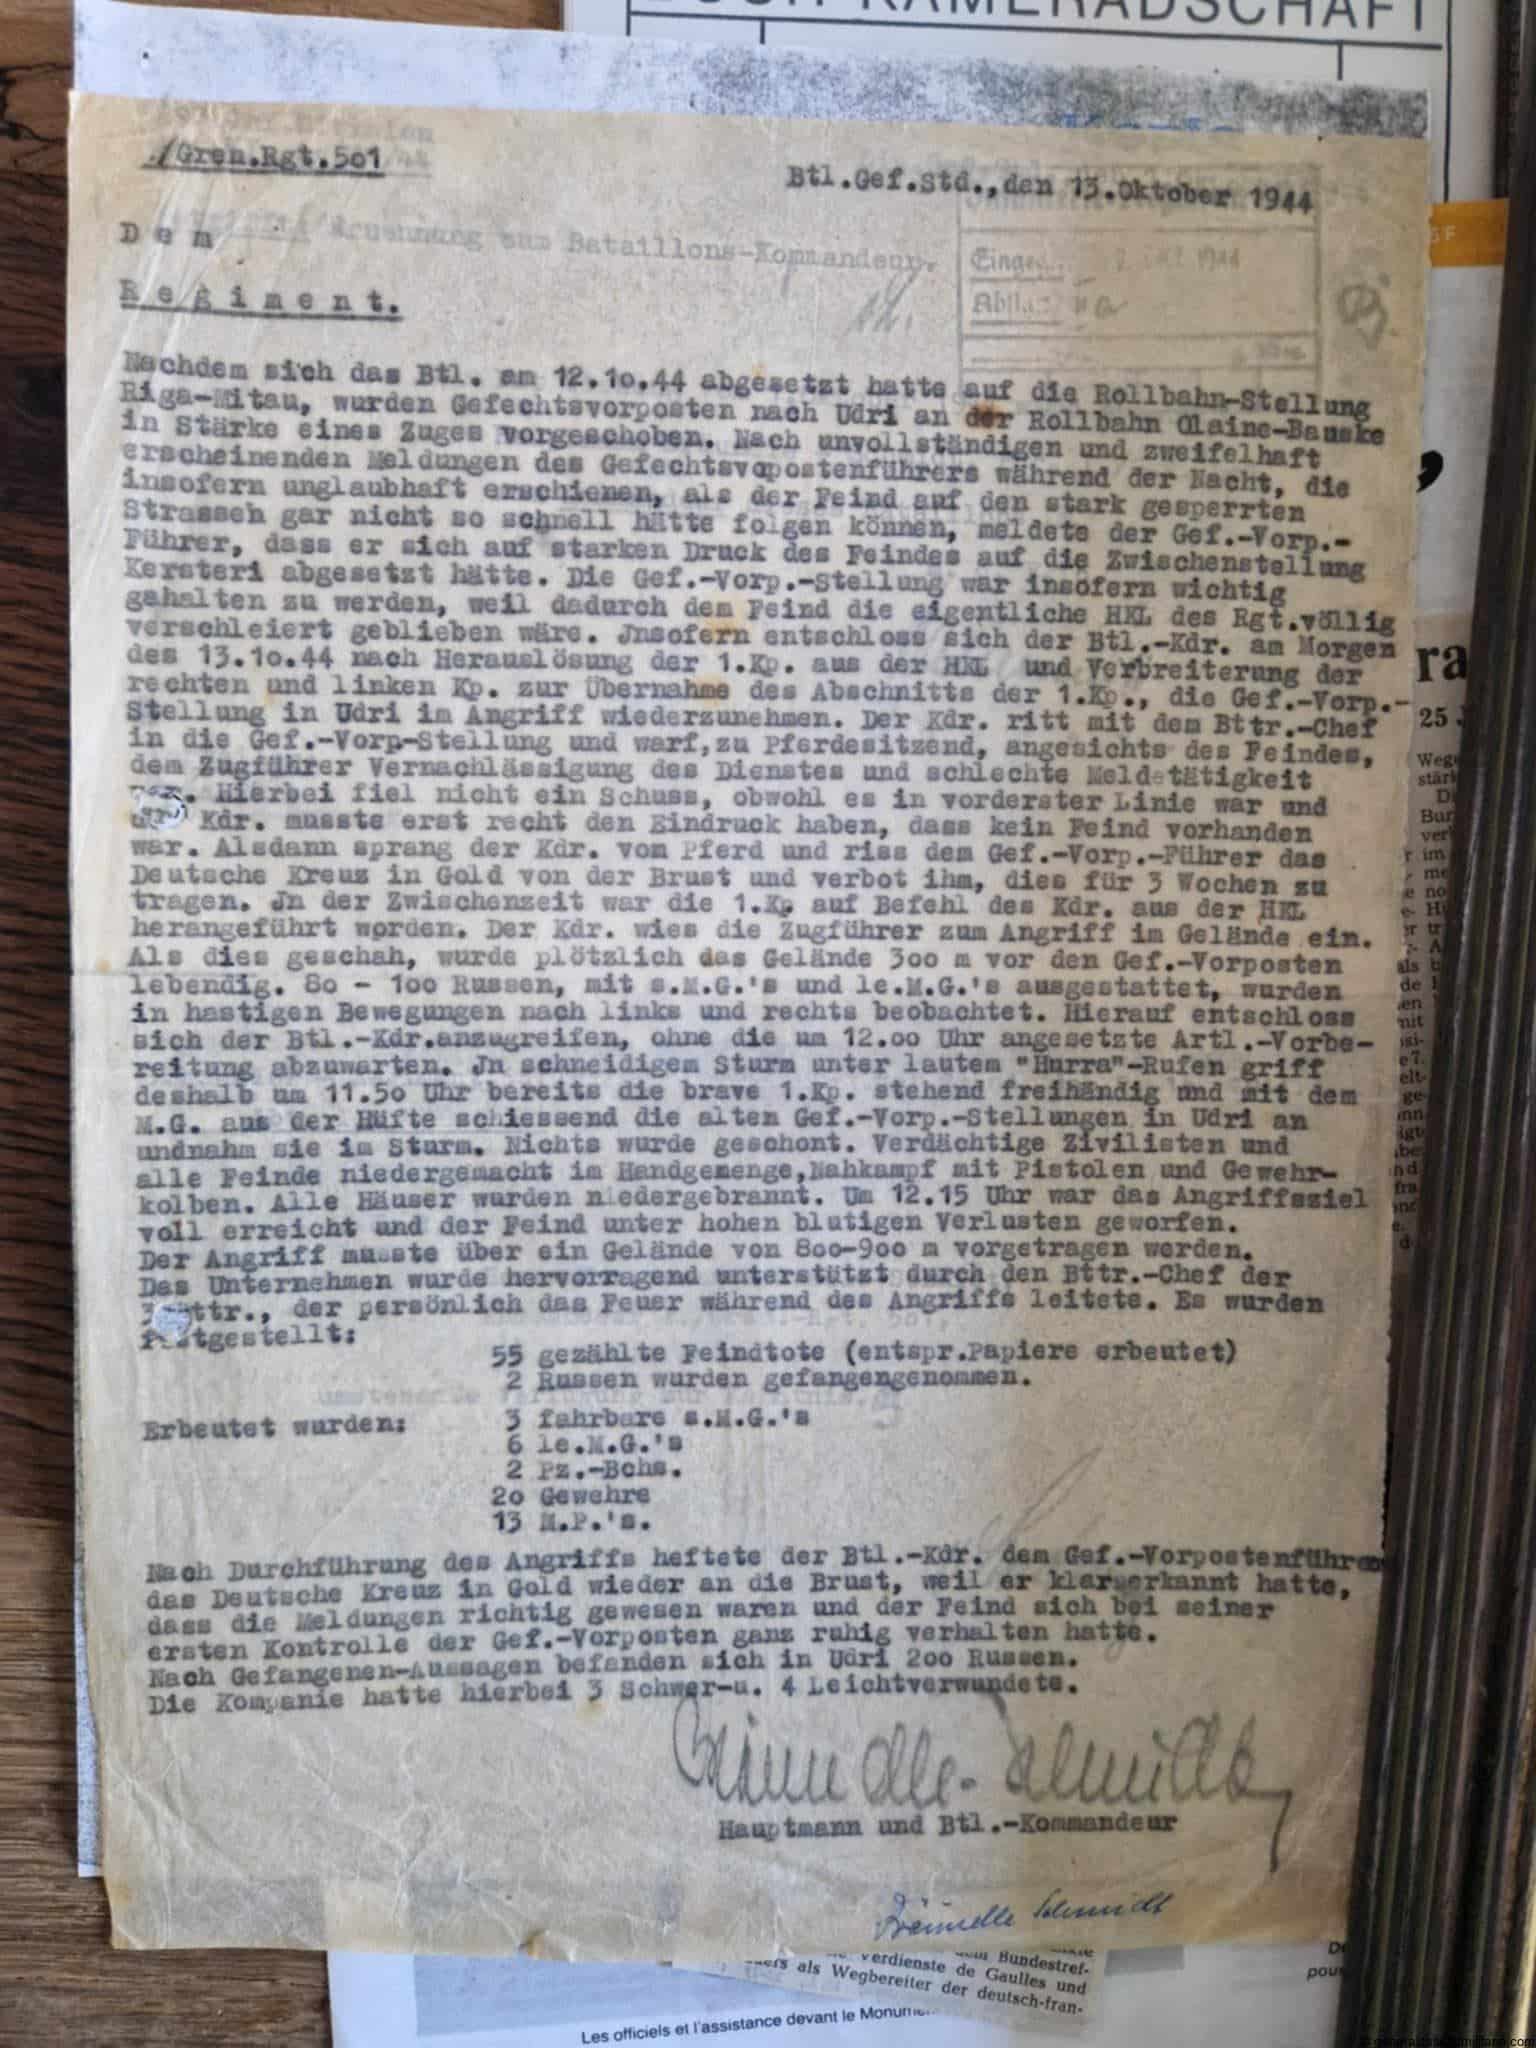 KAMERADSCHAFT
./Gren.Rgt.5o1
Btl.Gef.Std.,den 13.Oktober 1944
D e m
Ernennung zum Bataillons-Kommandeur.
Einge 1944
R e g i m e n t.
Nachdem sich das Btl. am 12.1o.44 abgesetzt hatte auf die Rollbahn-Stellung
Riga-Mitau, wurden Gefechtsvorposten nach Udri an der Rollbahn Olaine-Bauske
in Stärke eines Zuges vorgeschoben. Nach unvollständigen und zweifelhaft
erscheinenden Meldungen des Gefechtsvopostenführers während der Nacht, die
insofern unglaubhaft erschienen, als der Feind auf den stark gesperrten
Strassen gar nicht so schnell hätte folgen können, meldete der Gef.-Vorp.-
Führer, dass er sich auf starken Druck des Feindes auf die Zwischenstellung
Kersteri abgesetzt hätte. Die Gef.-Vorp.-Stellung war insofern wichtig
gehalten zu werden, weil dadurch dem Feind die eigentliche HKL des Rgt.völlig
verschleiert geblieben wäre. Jnsofern entschloss sich der Btl.-Kdr. am Morgen
des 13.1o.44 nach Herauslösung der 1.Kp. aus der HKL und Verbreiterung der
rechten und linken Kp. zur Übernahme des Abschnitts der 1.Kp., die Gef.-Vorp.-
Stellung in Udri im Angriff wiederzunehmen. Der Kdr. ritt mit dem Bttr.-Chef
in die Gef.-Vorp-Stellung und warf,zu Pferdesitzend, angesichts des Feindes,
dem Zugführer Vernachlässigung des Dienstes und schlechte Meldetätigkeit
Hierbei fiel nicht ein Schuss, obwohl es in vorderster Linie war und
Kdr. musste erst recht den Eindruck haben, dass kein Feind vorhanden
war. Alsdann sprang der Kdr. vom Pferd und riss dem Gef.-Vorp.-Führer das
Deutsche Kreuz in Gold von der Brust und verbot ihm, dies für 3 Wochen zu
tragen. Jn der Zwischenzeit war die 1.Kp auf Befehl des Kdr. aus der HKL
herangeführt worden. Der Kdr. wies die Zugführer zum Angriff im Gelände ein.
Als dies geschah, wurde plötzlich das Gelände 3oo m vor den Gef.-Vorposten
lebendig. 8o - 1oo Russen, mit s.M.G.'s und le.M.G.'s ausgestattet, wurden
in hastigen Bewegungen nach links und rechts beobachtet. Hierauf entschloss
sich der Btl.-Kdr.anzugreifen, ohne die um 12.oo Uhr angesetzte Artl.-Vorbe-
reitung abzuwarten. Jn schneidigem Sturm unter lautem "Hurra"-Rufen griff
deshalb um 11.5o Uhr bereits die brave 1.Kp. stehend freihändig und mit dem
M.G. aus der Hüfte schiessend die alten Gef.-Vorp.-Stellungen in Udri an
undnahm sie im Sturm. Nichts wurde geschont. Verdächtige Zivilisten und
alle Feinde niedergemacht im Handgemenge,Nahkampf mit Pistolen und Gewehr-
kolben. Alle Häuser wurden niedergebrannt. Um 12.15 Uhr war das Angriffsziel
voll erreicht und der Feind unter hohen blutigen Verlusten geworfen.
Der Angriff musste über ein Gelände von 8oo-9oo m vorgetragen werden.
Das Unternehmen wurde hervorragend unterstützt durch den Bttr.-Chef der
3.Bttr., der persönlich das Feuer während des Angriffs leitete. Es wurden
festgestellt:
55 gezählte Feindtote (entspr.Papiere erbeutet)
2 Russen wurden gefangengenommen.
Erbeutet wurden: 3 fahrbare s.M.G.'s
6 le.M.G.'s
2 Pz.-Bchs.
2o Gewehre
13 M.P.'s.
Nach Durchführung des Angriffs heftete der Btl.-Kdr. dem Gef.-Vorpostenführer
das Deutsche Kreuz in Gold wieder an die Brust, weil er klar erkannt hatte,
dass die Meldungen richtig gewesen waren und der Feind sich bei seiner
ersten Kontrolle der Gef.-Vorposten ganz ruhig verhalten hatte.
Nach Gefangenen-Aussagen befanden sich in Udri 2oo Russen.
Die Kompanie hatte hierbei 3 Schwer-u. 4 Leichtverwundete.
Hauptmann und Btl.-Kommandeur
dem Bundestref-
Verdienste de Gaulles und
als Wegbereiter der deutsch-fran-
Les officiels et l'assistance devant le